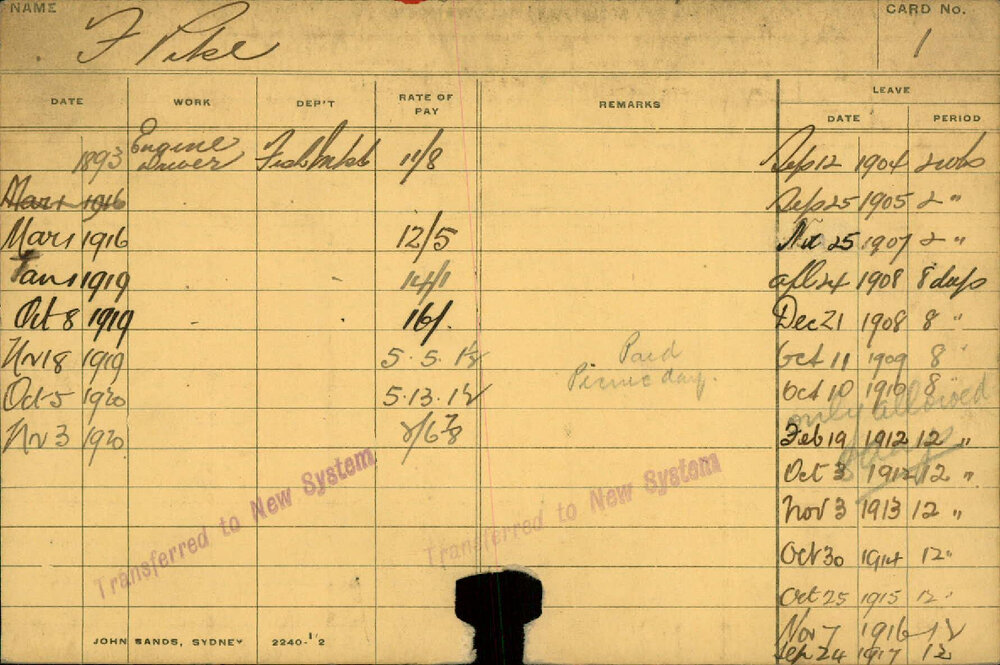 NAME F Pike CARD No. 1
DATE WORK DEP'T RATE OF PAY REMARKS LEAVE
DATE PERIOD
1893 Engine Driver Fish Mkt 11/8 Sep 12 1904 2 wks
Mar 1 1916 Sep 25 1905 2 "
Mar 1 1916 12/5 25 1907 2 "
Jan 1 1919 14/1 Apl 24 1908 8 days
Oct 8 1919 16/. Dec 21 1908 8 "
Nv 18 1919 5. 5. 1½ Paid Oct 11 1909 8 "
Picnic day.
Oct 5 1920 5.13. 1½ Oct 10 1910 8 "
only allowed
Nv 3 1920 Feb 19 1912 12 "
Oct 3 1912 12 "
Transferred to New System Transferred to New System
Nov 3 1913 12 "
Oct 30 1914 12 "
Oct 25 1915 12 "
Nov 7 1916 12
JOHN SANDS, SYDNEY 2240-1½
Sep 24 1917 12